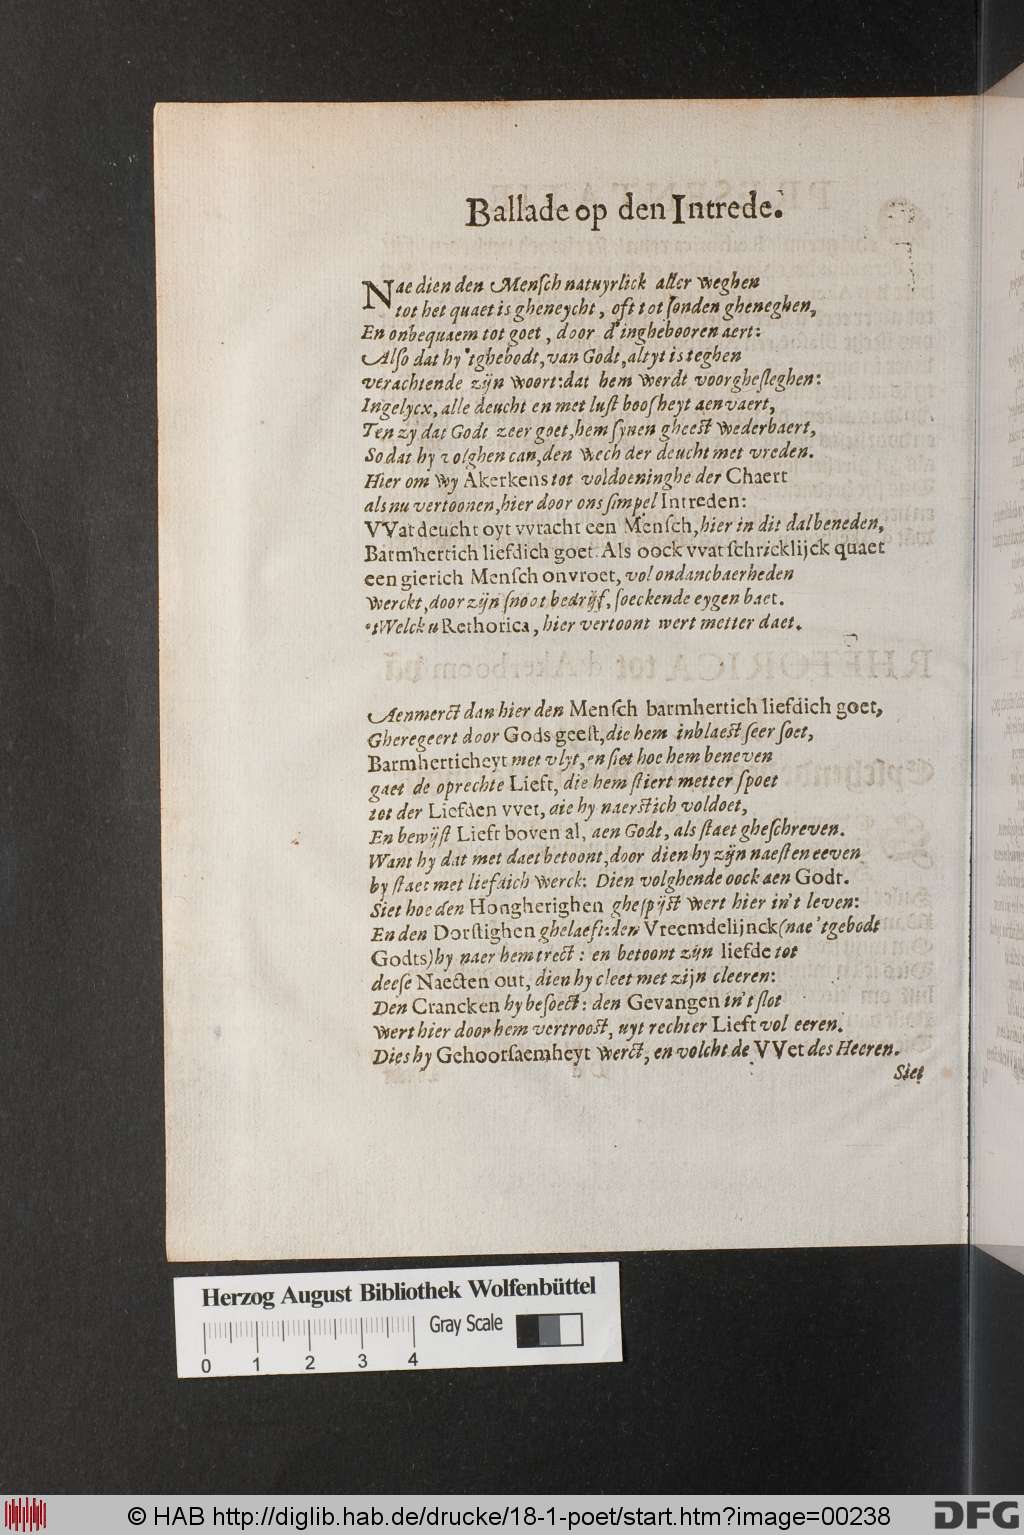 Ballade op den Intrede.
Nae dien den Mensch natuyrlick aller weghen
tot het quaet is gheneycht, oft tot sonden gheneghen,
En onbequaem tot goet, door d'inghebooren aert:
Also dat hy 'tghebodt, van Godt, altyt is teghen
verachtende zijn woort: dat hem werdt voorghesleghen:
Ingelycx, alle deucht en met lust boosheyt aenvaert,
Ten zy dat Godt zeer goet, hem synen gheest wederbaert,
So dat hy volghen can, den wech der deucht met vreden.
Hier om wy Akerkens tot voldoeninghe der Chaert
als nu vertoonen, hier door ons simpel Intreden:
VVat deucht oyt vvracht een Mensch, hier in dit dal beneden,
Barmhertich liefdich goet. Als oock vvat schricklijck quaet
een gierich Mensch onvroet, vol ondancbaerheden
werckt, door zijn snoot bedrijf, soeckende eygen baet.
'tWelck u Rethorica, hier vertoont wert metter daet.
Aenmerct dan hier den Mensch barmhertich liefdich goet,
Gheregeert door Gods geest, die hem inblaest seer soet,
Barmherticheyt met vlyt, en siet hoe hem beneven
gaet de oprechte Lieft, die hem stiert metter spoet
tot der Liefden vvet, die hy naerstich voldoet,
En bewijst Lieft boven al, aen Godt, als staet gheschreven.
Want hy dat met daet betoont, door dien hy zijn naesten eeven
by staet met liefdich werck: Dien volghende oock aen Godt.
Siet hoe den Hongherighen ghespijst wert hier in't leven:
En den Dorstighen ghelaeft: den Vreemdelijnck (nae 'tgebodt
Godts) hy naer hem trect: en betoont zijn liefde tot
deese Naecten out, dien hy cleet met zijn cleeren:
Den Crancken hy besoect: den Gevangen in't slot
wert hier door hem vertroost, uyt rechter Lieft vol eeren.
Dies hy Gehoorsaemheyt werct, en volcht de VVet des Heeren.
Siet
Herzog August Bibliothek Wolfenbüttel
Gray Scale
0 1 2 3 4
© HAB http://diglib.hab.de/drucke/18-1-poet/start.htm?image=00238
DFG